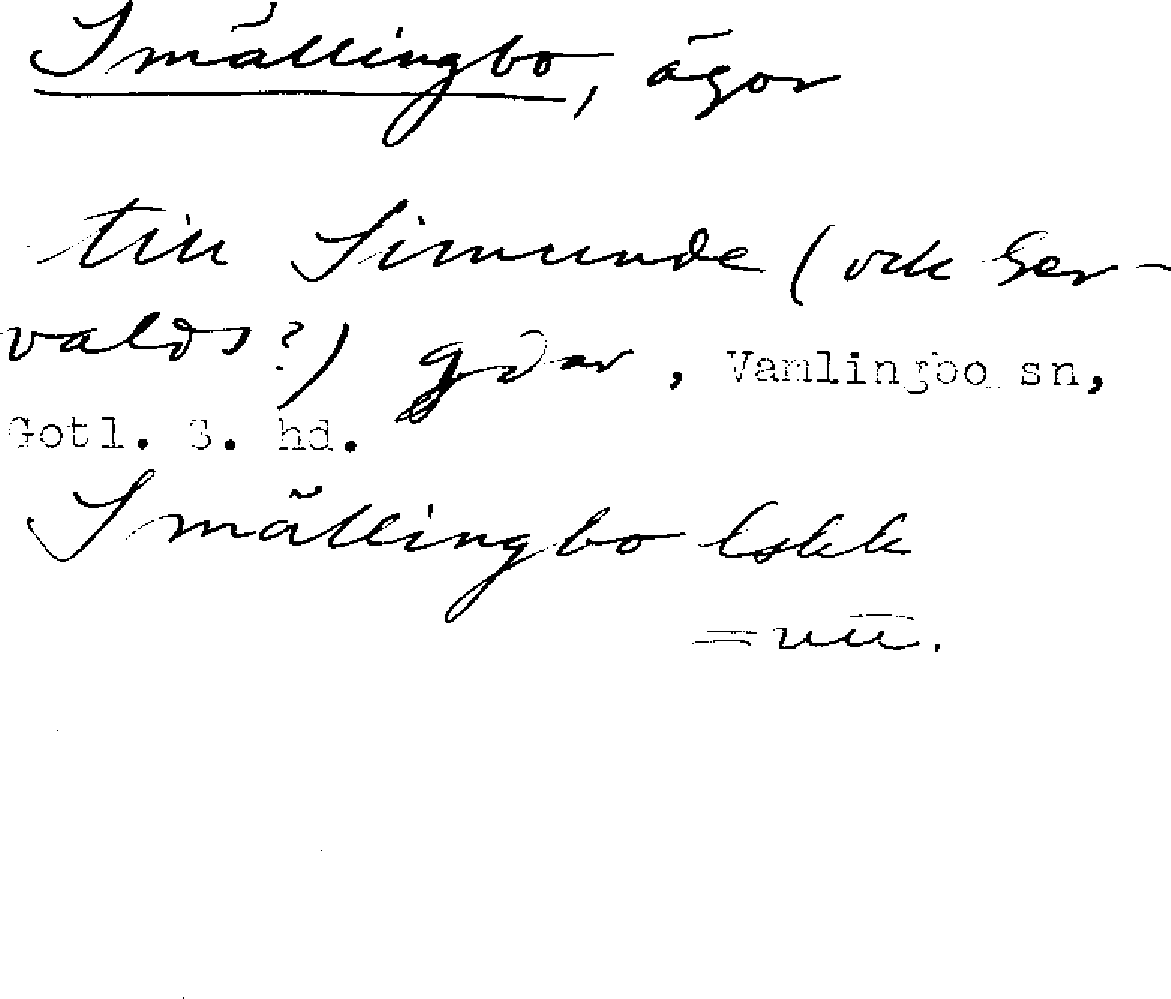 Smällingbo, ägor
till Simunde (ock Ger-
valds?) gdar, Vamlingbo sn,
Gotl. S. hd.
Smällingbo